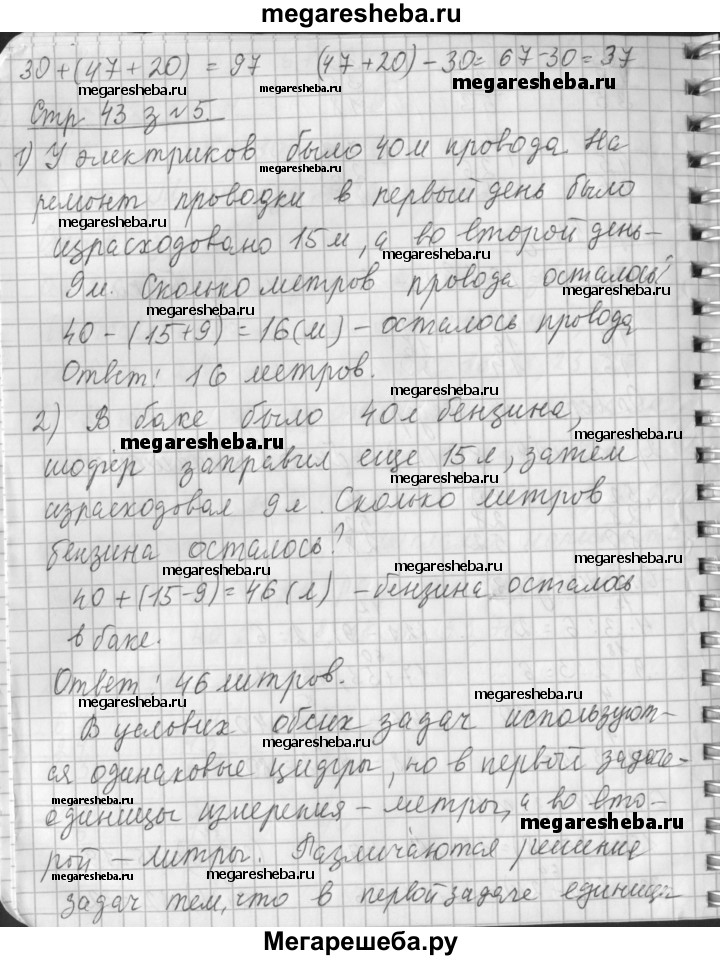 megaresheba.ru
30+(47+20) = 97 (47+20)-30= 67-30=37
megaresheba.ru megaresheba.ru megaresheba.ru
Стр 43 з №5.
megaresheba.ru
1) У электриков было 40м провода. На
megaresheba.ru
ремонт проводки в первый день было
megaresheba.ru megaresheba.ru
израсходовано 15м, а во второй день-
9м. Сколько метров провода осталось?
megaresheba.ru megaresheba.ru
40-(15+9)=16(м) - осталось провода
megaresheba.ru
Ответ: 16 метров.
megaresheba.ru
2) В баке было 40л бензина,
megaresheba.ru
шофёр заправил еще 15л, затем
megaresheba.ru
израсходовал 9л. Сколько литров
бензина осталось?
megaresheba.ru megaresheba.ru megaresheba.ru
40+(15-9)=46(л) - бензина осталось
в баке.
megaresheba.ru
Ответ: 46 литров.
megaresheba.ru megaresheba.ru
В услових обеих задач использует-
megaresheba.ru
ся одинаковые цифры, но в первой задаче-
megaresheba.ru
единицы измерения - метры, а во вто-
megaresheba.ru
рой - литры. Различаются решение
megaresheba.ru megaresheba.ru
задач тем, что в первой задаче единицы
Мегарешеба.ру